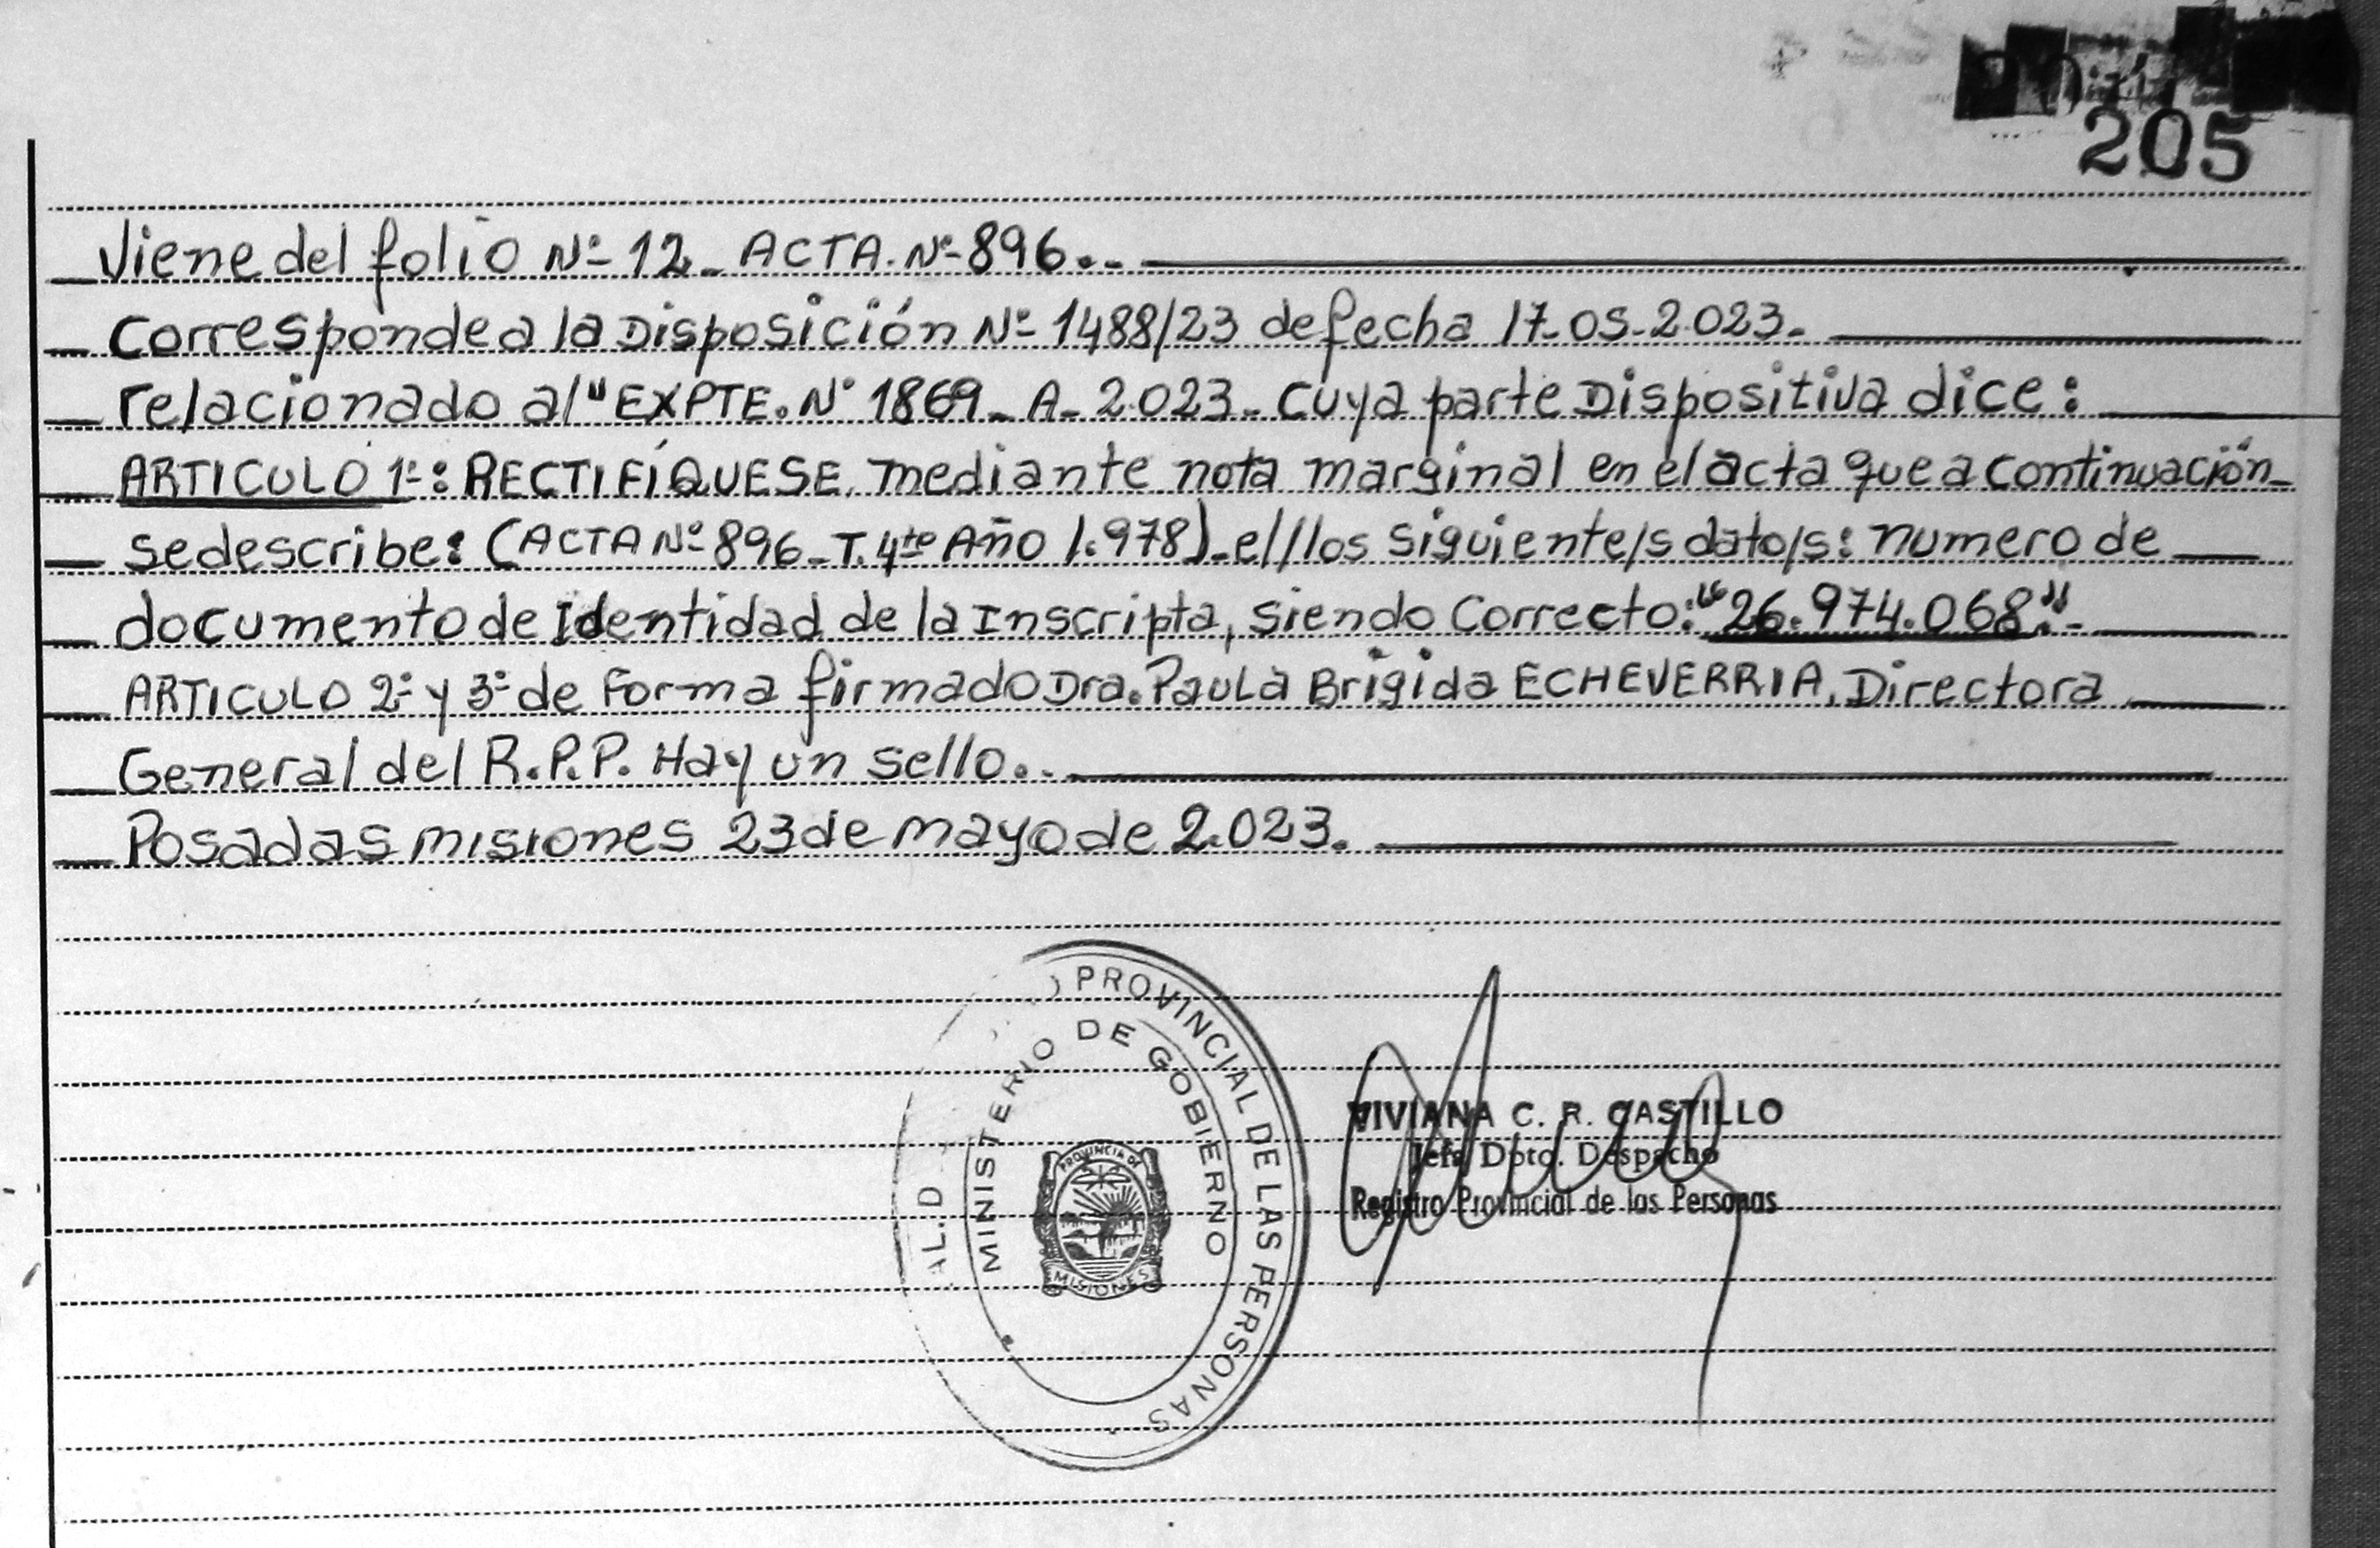 205
Viene del folio Nº 12_ ACTA. Nº 896._
Corresponde a la Disposición Nº 1488/23 de fecha 17-05-2.023._
relacionado al "EXPTE. Nº 1869_ A_ 2.023_ cuya parte Dispositiva dice:
ARTICULO 1º: RECTIFÍQUESE, mediante nota marginal en el acta que a continuación_
se describe: (ACTA Nº 896_T. 4to Año 1.978)_el/los siguiente/s dato/s: numero de
documento de Identidad de la Inscripta, siendo Correcto: "26.974.068"._
ARTICULO 2º y 3º de Forma firmado Dra. Paula Brigida ECHEVERRIA, Directora
General del R.P.P. Hay un sello._
Posadas misiones 23 de mayo de 2.023.
PROVINCIAL DE LAS PERSONAS
MINISTERIO DE GOBIERNO
PROVINCIA DE
MISIONES
VIVIANA C. R. CASTILLO
Jefa Dpto. Despacho
Registro Provincial de las Personas